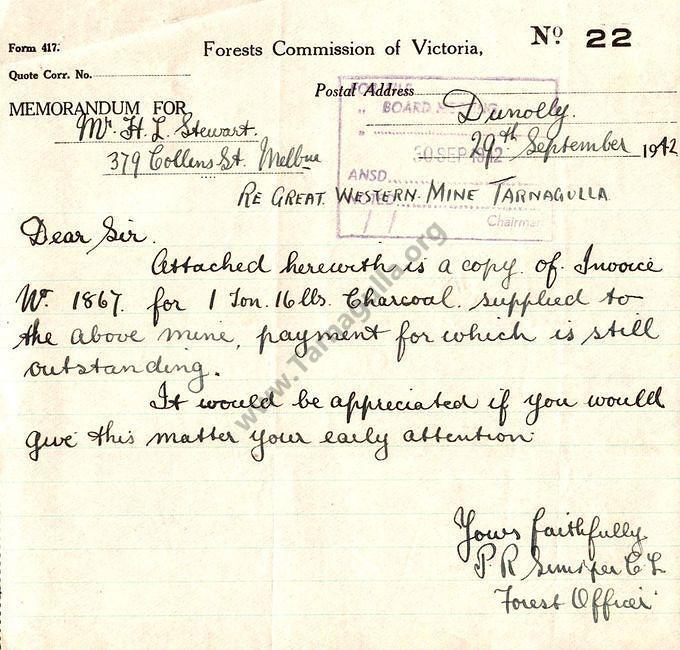 Form 417.
Forests Commission of Victoria,
No 22
Quote Corr. No.
Postal Address
MEMORANDUM FOR
Dunolly.
Mr. H. L. Stewart.
29th September 1942
379 Collins St. Melbne
FOR FILE
" BOARD MEETING
"
30 SEP 1942
ANSD.
NOTED
Chairman
RE GREAT WESTERN MINE TARNAGULLA
Dear Sir.
Attached herewith is a copy of Invoice
No. 1867. for 1 Ton. 16 lbs. Charcoal supplied to
the above mine, payment for which is still
outstanding.
It would be appreciated if you would
give this matter your early attention
Yours faithfully
P. R.
Forest Officer
www.Tarnagulla.org